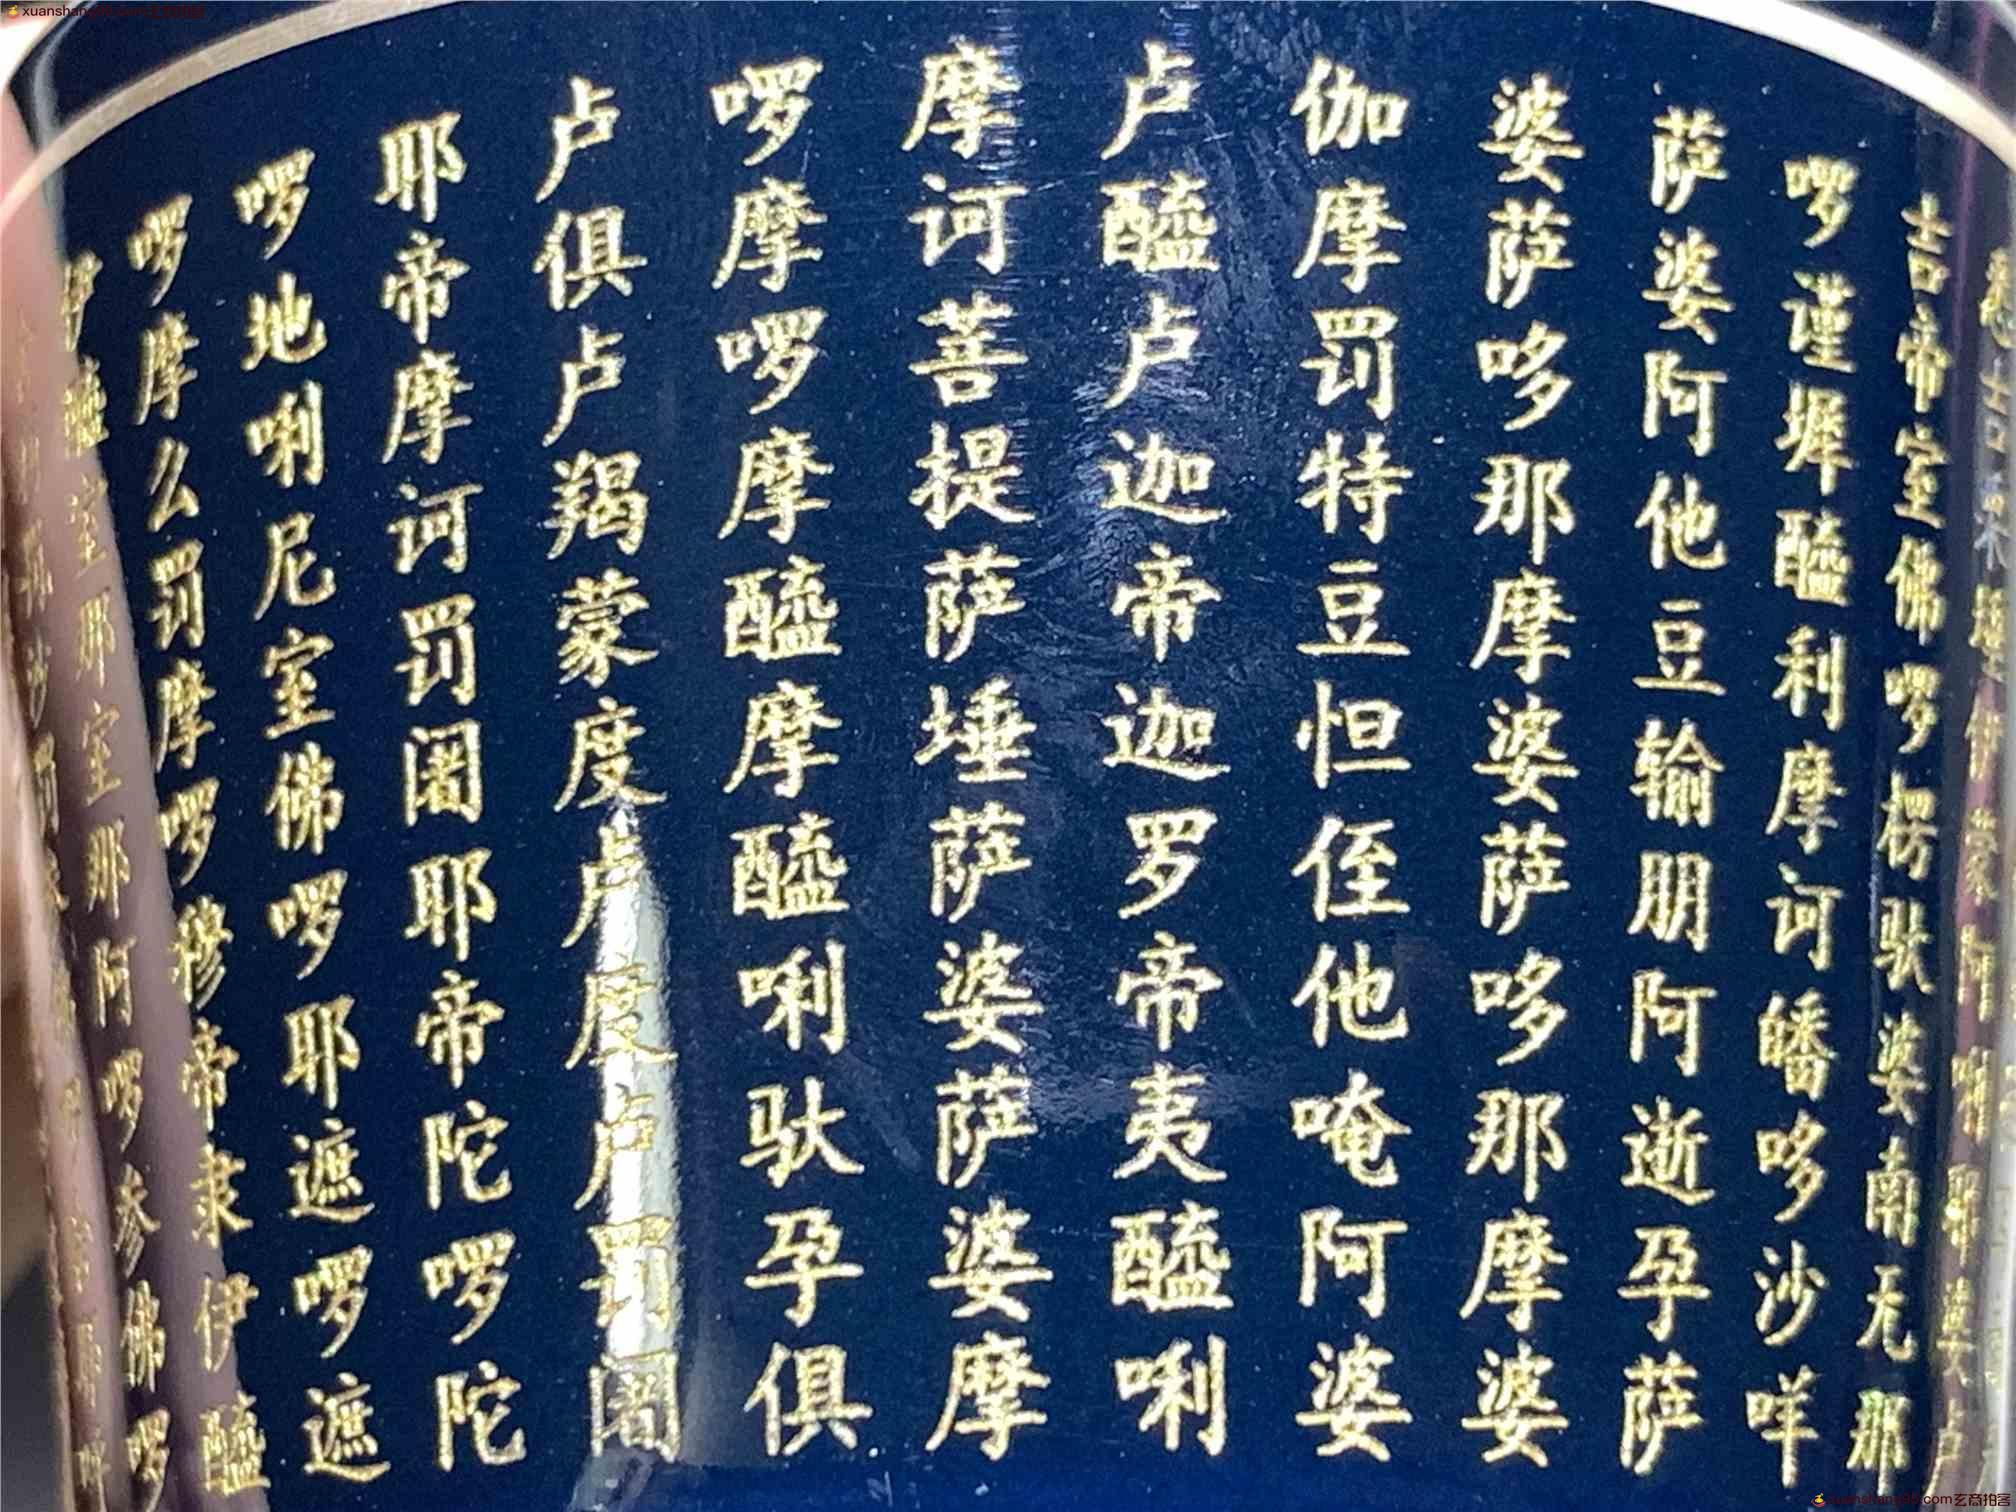 吉帝室佛啰楞驮婆南无那
啰谨墀醯利摩诃皤哆沙咩
萨婆阿他豆输朋阿逝孕萨
婆萨哆那摩婆萨哆那摩婆
伽摩罚特豆怛侄他唵阿婆
卢醯卢迦帝迦罗帝夷醯唎
摩诃菩提萨埵萨婆萨婆摩
啰摩啰摩醯摩醯唎驮孕俱
卢俱卢羯蒙度卢度卢罚阇
耶帝摩诃罚阇耶帝陀啰陀
啰地唎尼室佛啰耶遮啰遮
啰摩么罚摩啰穆帝隶伊醯
伊醯室那室那阿啰参佛啰
xuanshang95.com玄商拍客